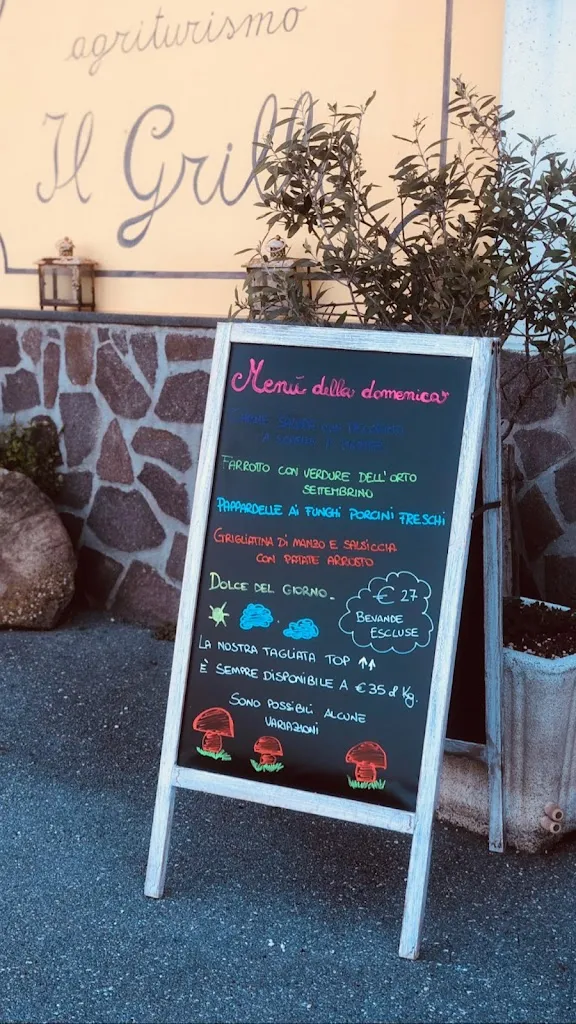 agriturismo
Il Grill
Menú della domenica
CARNE SALADA CON
FARROTTO CON VERDURE DELL'ORTO
SETTEMBRINO
PAPPARDELLE AI FUNGHI PORCINI FRESCHI
GRIGLIATINA DI MANZO E SALSICCIA
CON PATATE ARROSTO
DOLCE DEL GIORNO.
€ 27
BEVANDE
ESCLUSE
LA NOSTRA TAGLIATA TOP
È SEMPRE DISPONIBILE A €35 al Kg.
SONO POSSIBILI ALCUNE
VARIAZIONI